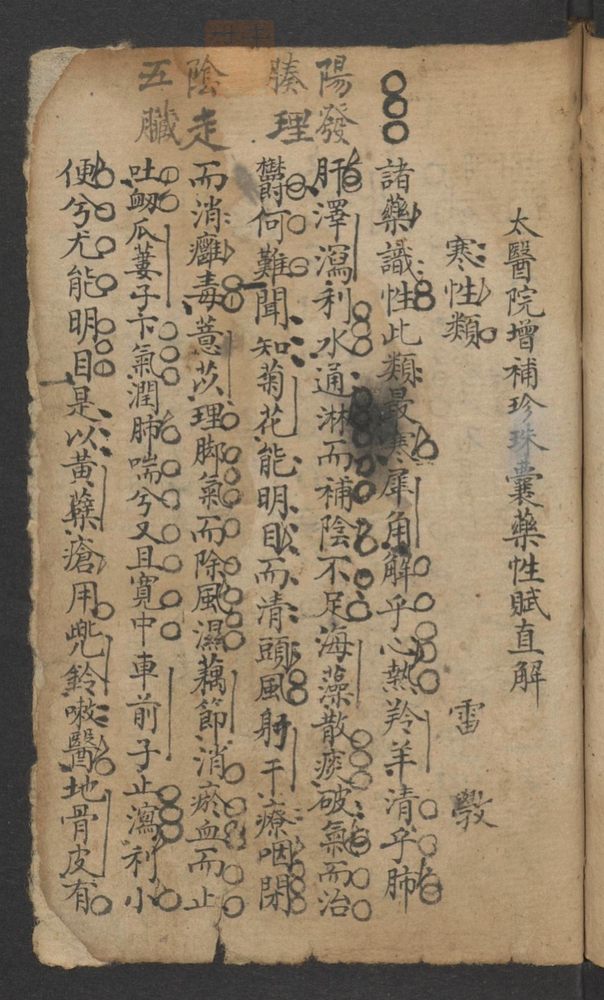 太醫院增補珍珠囊藥性賦直解
寒性類 雷斆
諸藥識性此類最寒犀角解乎心熱羚羊清乎肺
肝澤瀉利水通淋而補陰不足海藻散痰破氣而治
鬱何難聞知菊花能明目而清頭風射干療咽閉
而消癰毒薏苡理脚氣而除風濕藕節消瘀血而止
吐衂瓜蔞子下氣潤肺喘兮又且寛中車前子止瀉利小
便兮尤能明目是以黃蘗瘡用兜鈴嗽醫地骨皮有
陽發
腠理
陰走
五臟